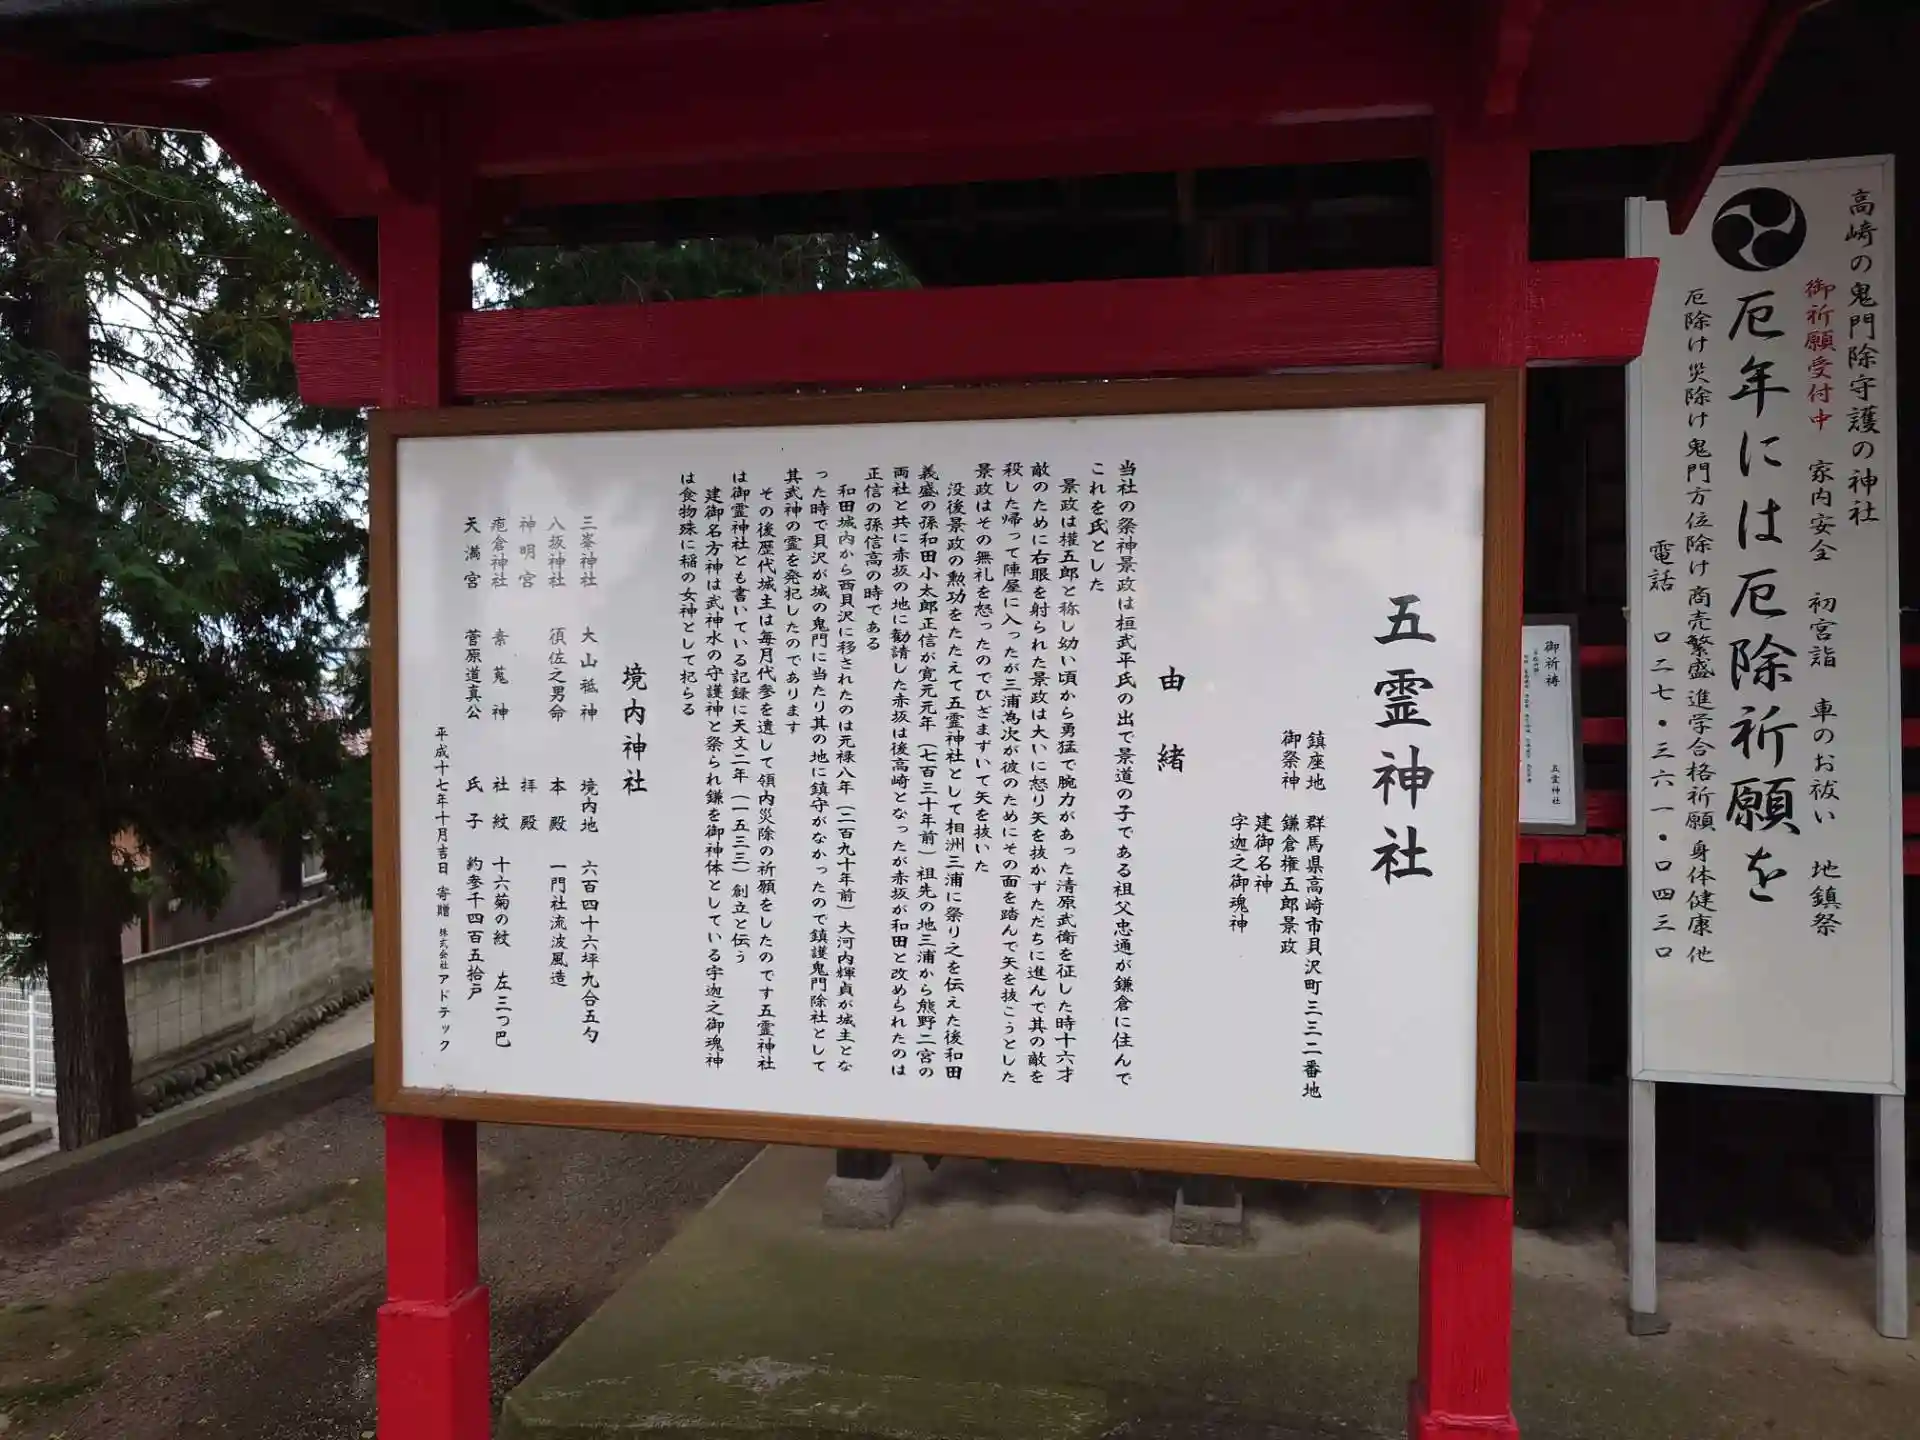 五霊神社
鎮座地　群馬県高崎市貝沢町三三二番地
御祭神　鎌倉権五郎景政
建御名神
字迦之御魂神
由緒
当社の祭神景政は桓武平氏の出で景道の子である祖父忠通が鎌倉に住んで
これを氏とした
景政は権五郎と称し幼い頃から勇猛で腕力があった清原武衡を征した時十六才
敵のために右眼を射られた景政は大いに怒り矢を抜かずただちに進んで其の敵を
殺した帰って陣屋に入ったが三浦為次が彼のためにその面を踏んで矢を抜こうとした
景政はその無礼を怒ったのでひざまずいて矢を抜いた
没後景政の勲功をたたえて五霊神社として相洲三浦に祭り之を伝えた後和田
義盛の孫和田小太郎正信が寛元元年（七百三十年前）祖先の地三浦から熊野二宮の
両社と共に赤坂の地に勧請した赤坂は後高崎となったが赤坂が和田と改められたのは
正信の孫信高の時である
和田城内から西貝沢に移されたのは元禄八年（二百九十年前）大河内輝貞が城主とな
った時で貝沢が城の鬼門に当たり其の地に鎮守がなかったので鎮護鬼門除社として
其武神の霊を発祀したのであります
その後歴代城主は毎月代参を遣して領内災除の祈願をしたのです五霊神社
は御霊神社とも書いている記録に天文二年（一五三三）創立と伝う
建御名方神は武神水の守護神と祭られ鎌を御神体としている字迦之御魂神
は食物殊に稲の女神として祀らる
境内神社
三峯神社　大山祗神　境内地　六百四十六坪九合五勺
八坂神社　須佐之男命　本殿　一門社流波風造
神明宮　拝殿
疱倉神社　素莵神　社紋　十六菊の紋　左三つ巴
天満宮　菅原道真公　氏子　約参千四百五拾戸
平成十七年十月吉日　寄贈　株式会社アドテック
高崎の鬼門除守護の神社
御祈願受付中　家内安全　初宮詣　車のお祓い　地鎮祭
厄年には厄除祈願を
厄除け災除け鬼門方位除け商売繁盛進学合格祈願身体健康他
電話　〇二七・三六一・〇四三〇
御祈祷
五霊神社